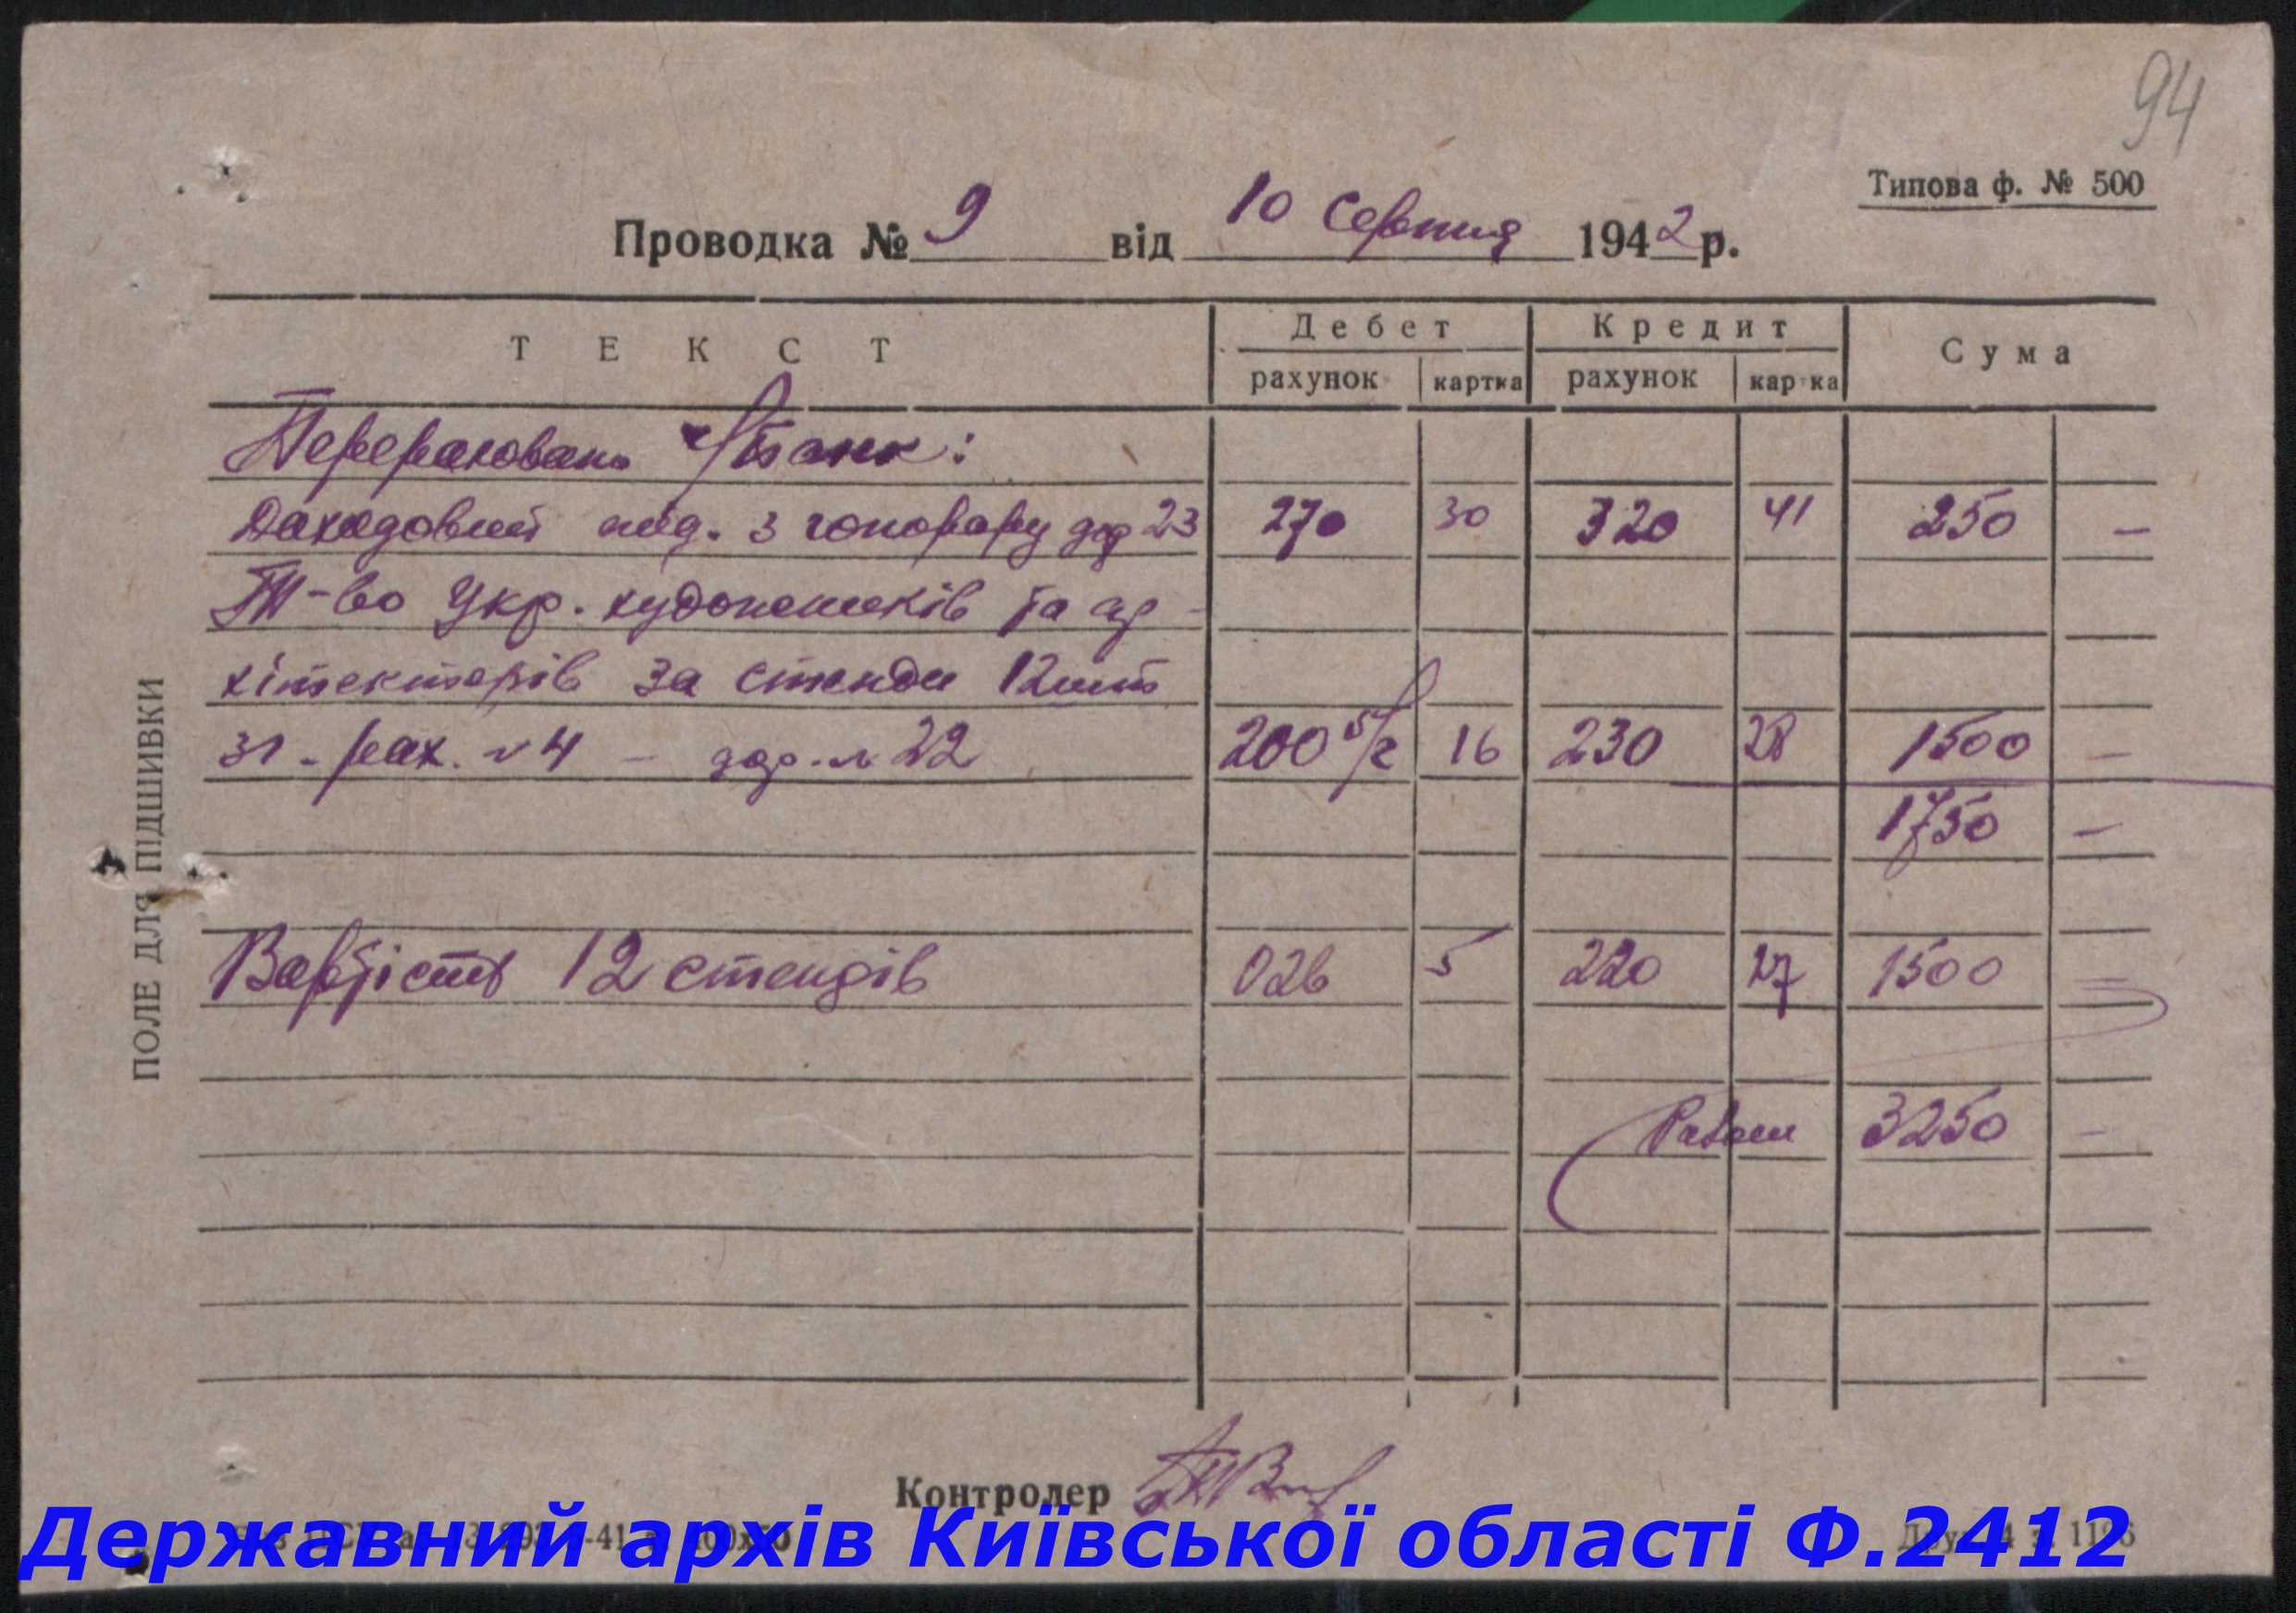 94
Типова ф. № 500
Проводка № 9 від 10 серпня 1942 р.
ТЕКСТ Дебет Кредит Сума
рахунок картка рахунок картка
Перераховано ч/Банк:
Доходовий под. з гонорару дор 23 270 30 320 41 250 —
Т-во Укр. художників та ар-
хітекторів за стенди 12 шт
зг. рах. № 4 — дор. № 22 200 б/г 16 230 28 1500 —
1750 —
Вартість 12 стендів 026 5 220 27 1500 —
Разом 3250 —
ПОЛЕ ДЛЯ ПІДШИВКИ
Контролер
Державний архів Київської області Ф.2412